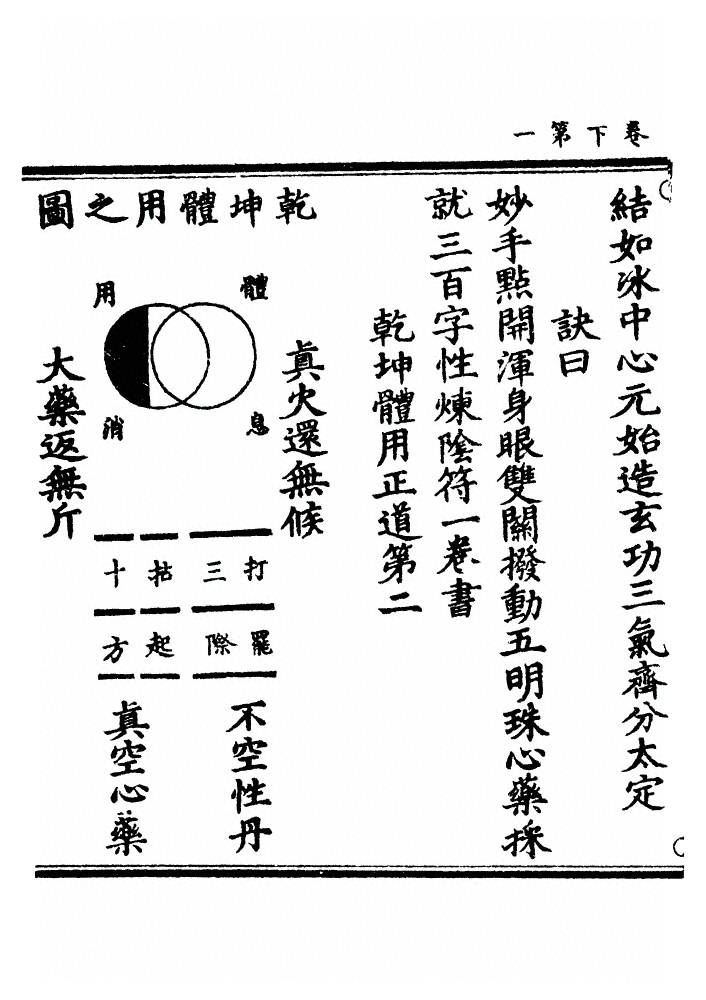 卷下第一
結如冰中心元始造玄功三氣齊分太定
訣曰
妙手點開渾身眼雙關撥動五明珠心藥採
就三百字性煉陰符一卷書
乾坤體用正道第二
乾坤體用之圖
體
用
息
消
真火還無候
大藥返無斤
打三拈十
罷際起方
不空性丹
真空心藥